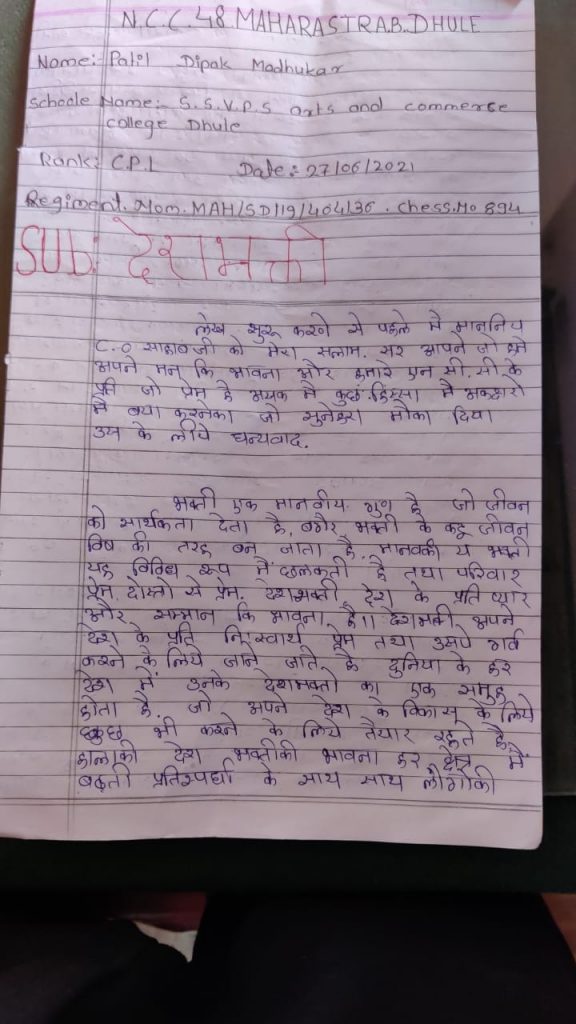 N.C.C 48 MAHARASTRA.B.DHULE
Name: Patil Dipak Madhukar
Schoole Name:- S.S.V.P.S arts and commerce
college Dhule
Rank: C.P.L Date: 27/06/2021
Regiment.Nom. MAH/SD/19/464136. Chess.No 894
SUB: देशभक्ती
लेख शुरू करने से पहले मै माननिय
C.O साहाबजी को मेरा सलाम. सर आपने जो हमे
अपने मन कि भावना और हमारे एन सी. सी के
प्रती जो प्रेम है कुछ हिस्सा
मै बया करनेका जो सुनेहरा मौका दिया
उस के लीये धन्यवाद.
भक्ती एक मानवीय गुण है जो जीवन
को सार्थकता देता है, बगैर भक्ती के कहू जीवन
विष की तरह बन जाता है. मानवकी य भक्ती
यह विविध रूप में छलकती है तथा परिवार
प्रेम, दोस्तो से प्रेम. देशभक्ती देश के प्रति प्यार
और सम्मान कि भावना है।। देशभक्ती अपने
देश के प्रति निःस्वार्थ प्रेम तथा उसपे गर्व
करने के लिये जाने जाते है दुनिया के हर
देश में उनके देशभक्तो का एक समुह
होता है. जो अपने देश के विकास के लिये
कुछ भी करने के लिये तैयार रहते है.
हालाकी देश भक्तीकी भावना हर क्षेत्र में
बढ़ती प्रतिस्पर्धा के साथ साथ लोगोकी